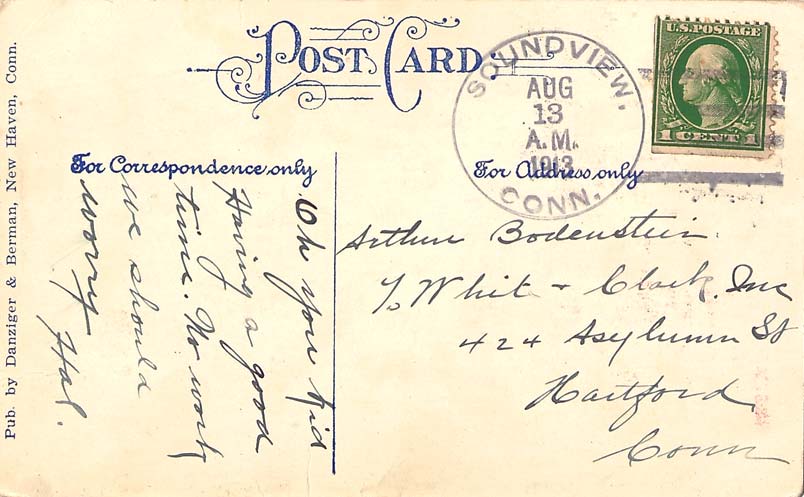 POST CARD.
SOUNDVIEW,
AUG
13
A.M.
1913
CONN.
U.S. POSTAGE
1 CENT 1
For Correspondence only
For Address only
Oh you kid
Having a good
time. No work,
we should
worry
Hal.
Arthur Bodenstein
c/o Whit + Clark, Inc
424 Asylumn St
Hartford
Conn
Pub. by Danziger & Berman, New Haven, Conn.